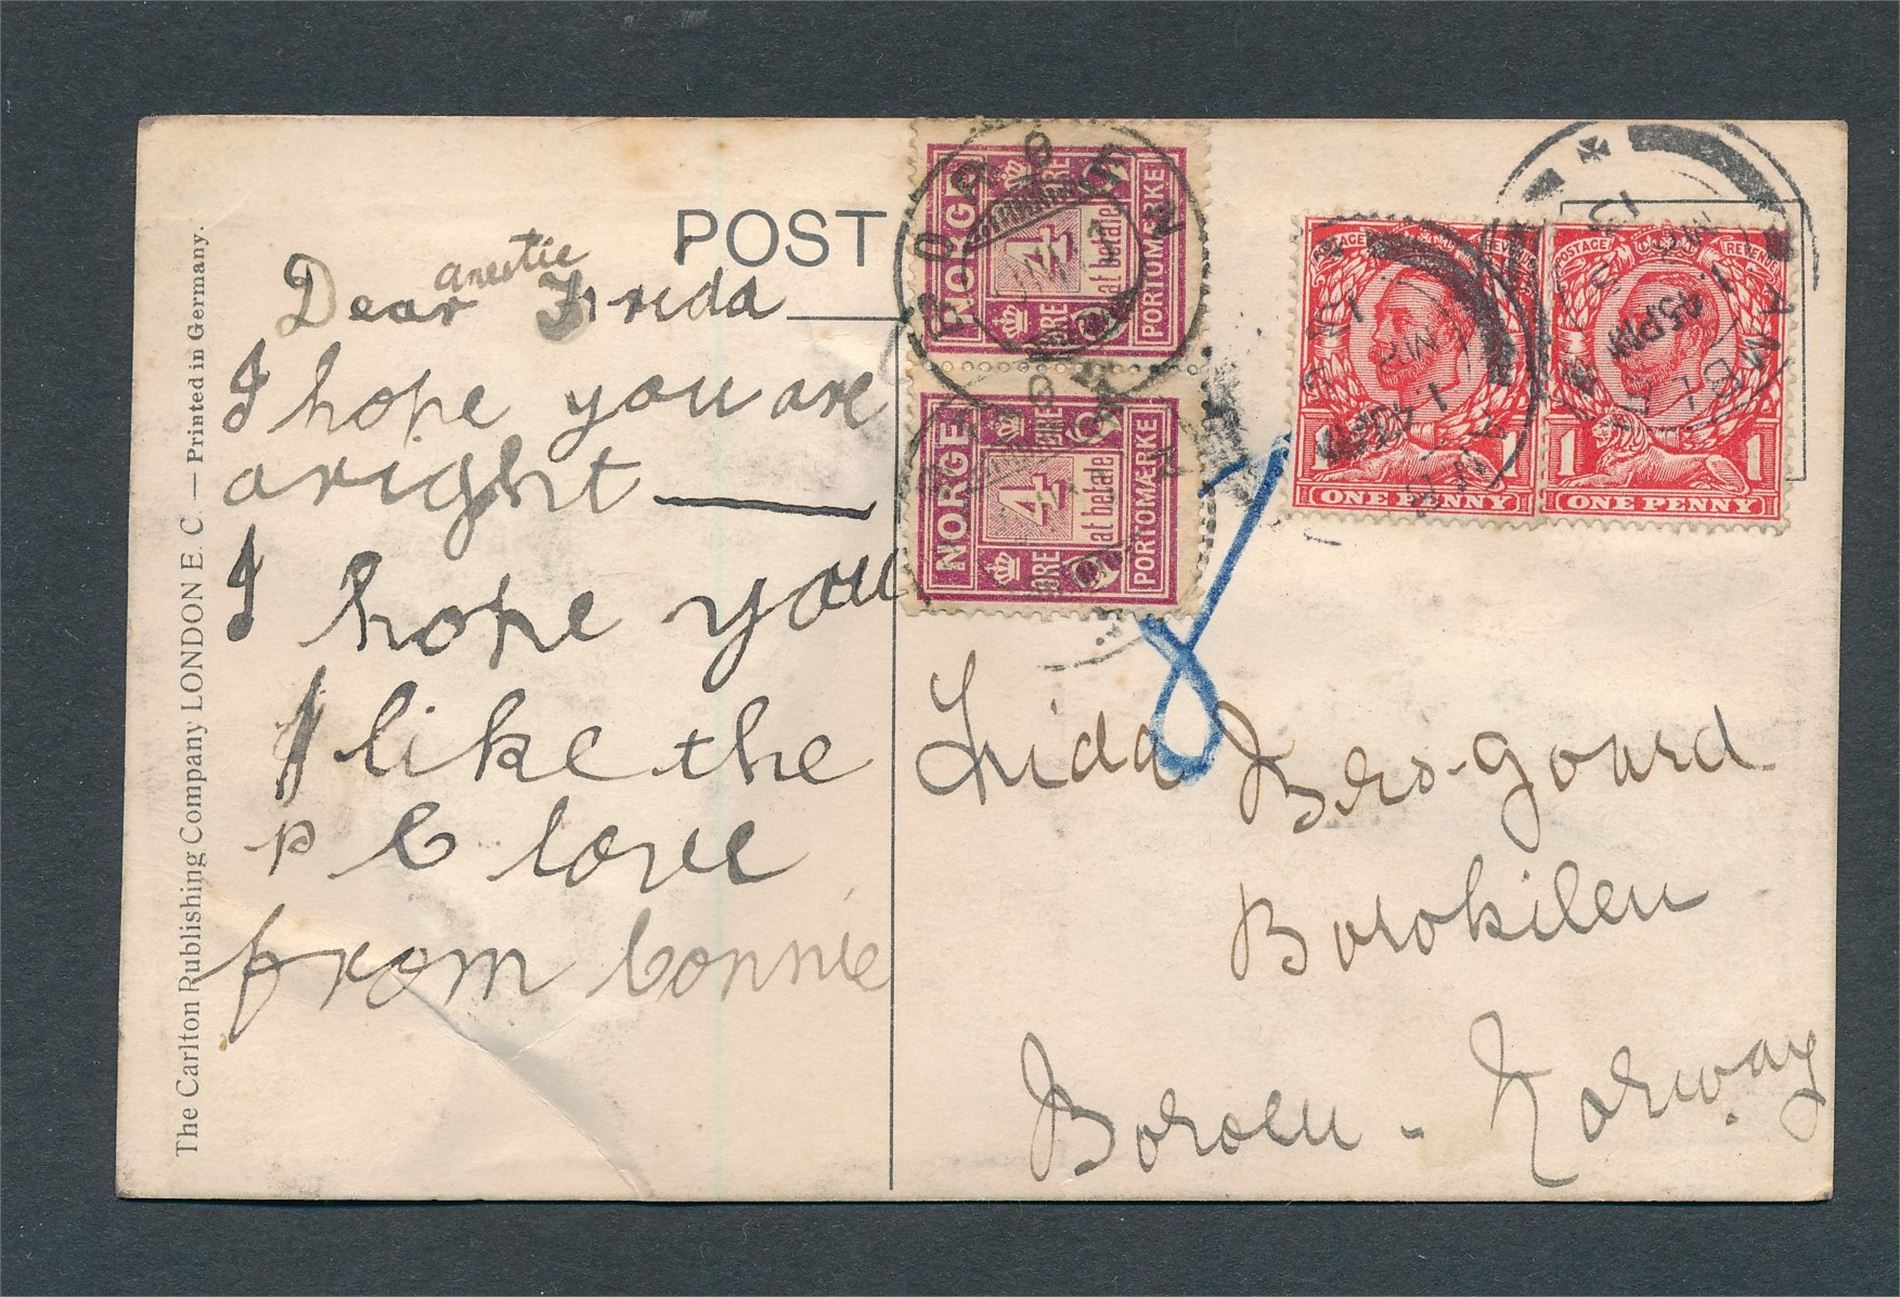 POST
Dear auntie Frida
I hope you are
aright
I hope you
I like the
p c love
from Connie
The Carlton Publishing Company LONDON E. C. — Printed in Germany.
NORGE
4
ØRE
at betale
PORTOMÆRKE
NORGE
4
ØRE
at betale
PORTOMÆRKE
POSTAGE REVENUE
1 1
ONE PENNY
POSTAGE REVENUE
1 1
ONE PENNY
1.45PM
MR
13
1.45PM
MR
13
8
Frida
Borokilen
Boroen - Norway